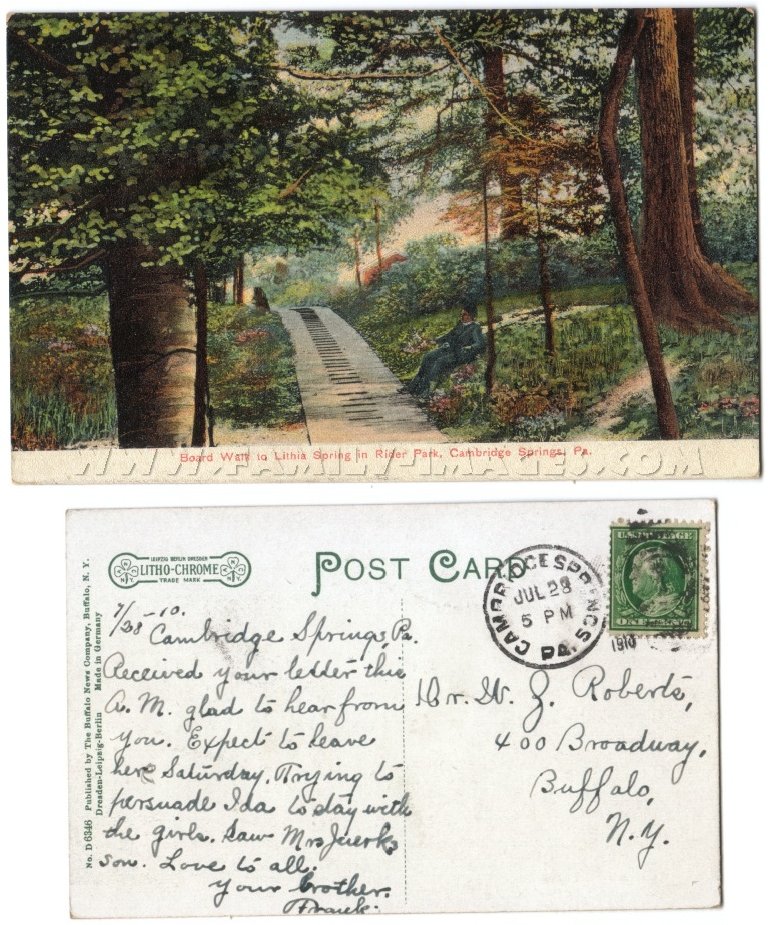 Board Walk to Lithia Spring in Rider Park, Cambridge Springs, Pa.
WWW.FAMILY-IMAGES.COM
LEIPZIG BERLIN DRESDEN
LITHO-CHROME
TRADE MARK
POST CARD
CAMBRIDGE SPRINGS
JUL 28
5 PM
PA.
1910
7/28-10.
Cambridge Springs, Pa.
Received your letter this
A. M. glad to hear from
you. Expect to leave
here Saturday. Trying to
persuade Ida to day with
the girls. Saw Mrs
son. Love to all.
Your brother.
Frank.
Mr. W. J. Roberts,
400 Broadway,
Buffalo,
N.Y.
No. D 6346 Published by The Buffalo News Company, Buffalo, N. Y.
Dresden-Leipzig-Berlin Made in Germany